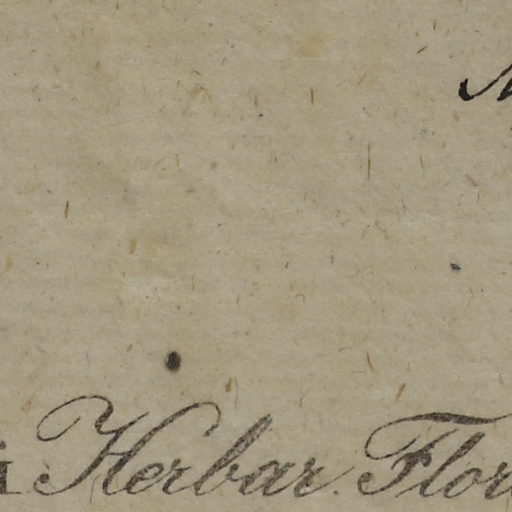 Herbar. Flor